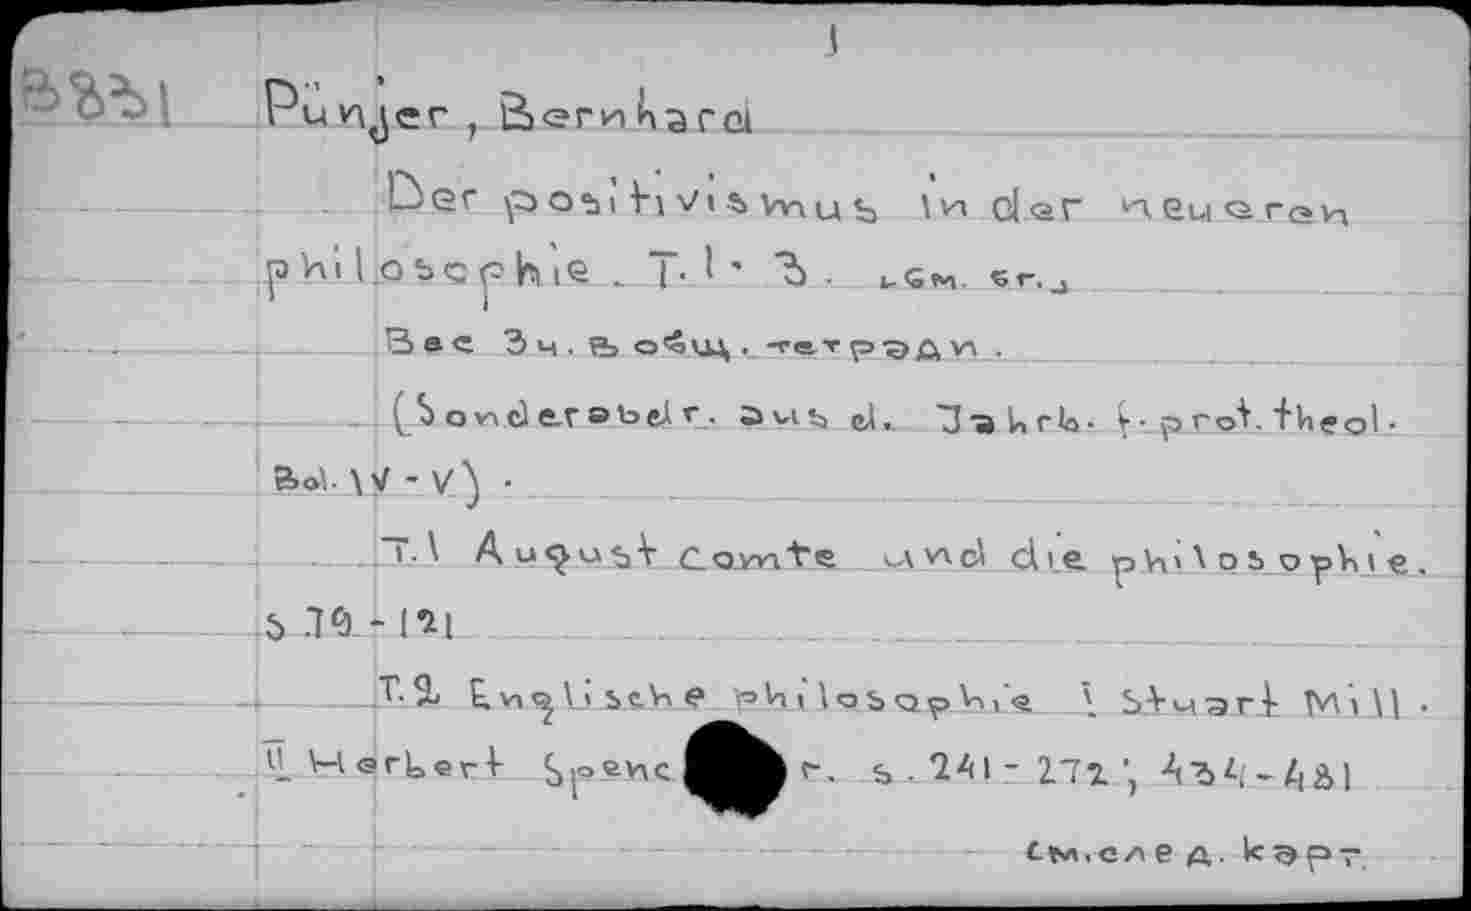 1
8331 Pünjer, Bernhard
Der positivismus in der neueren
philosophie. T. 1-3. [Gm. sr.]
Все 3ч. в общ. тетради.
(Sonderabdr. aus d. Jahrb. f. prot. theol.
Bd. IV-V).
T.1 August Comte und die philosophie.
S. 79-121
T.2 Englische philosophie I Stuart Mill.
II Herbert Spenc r. s. 241-272; 434-481
см.след. карт